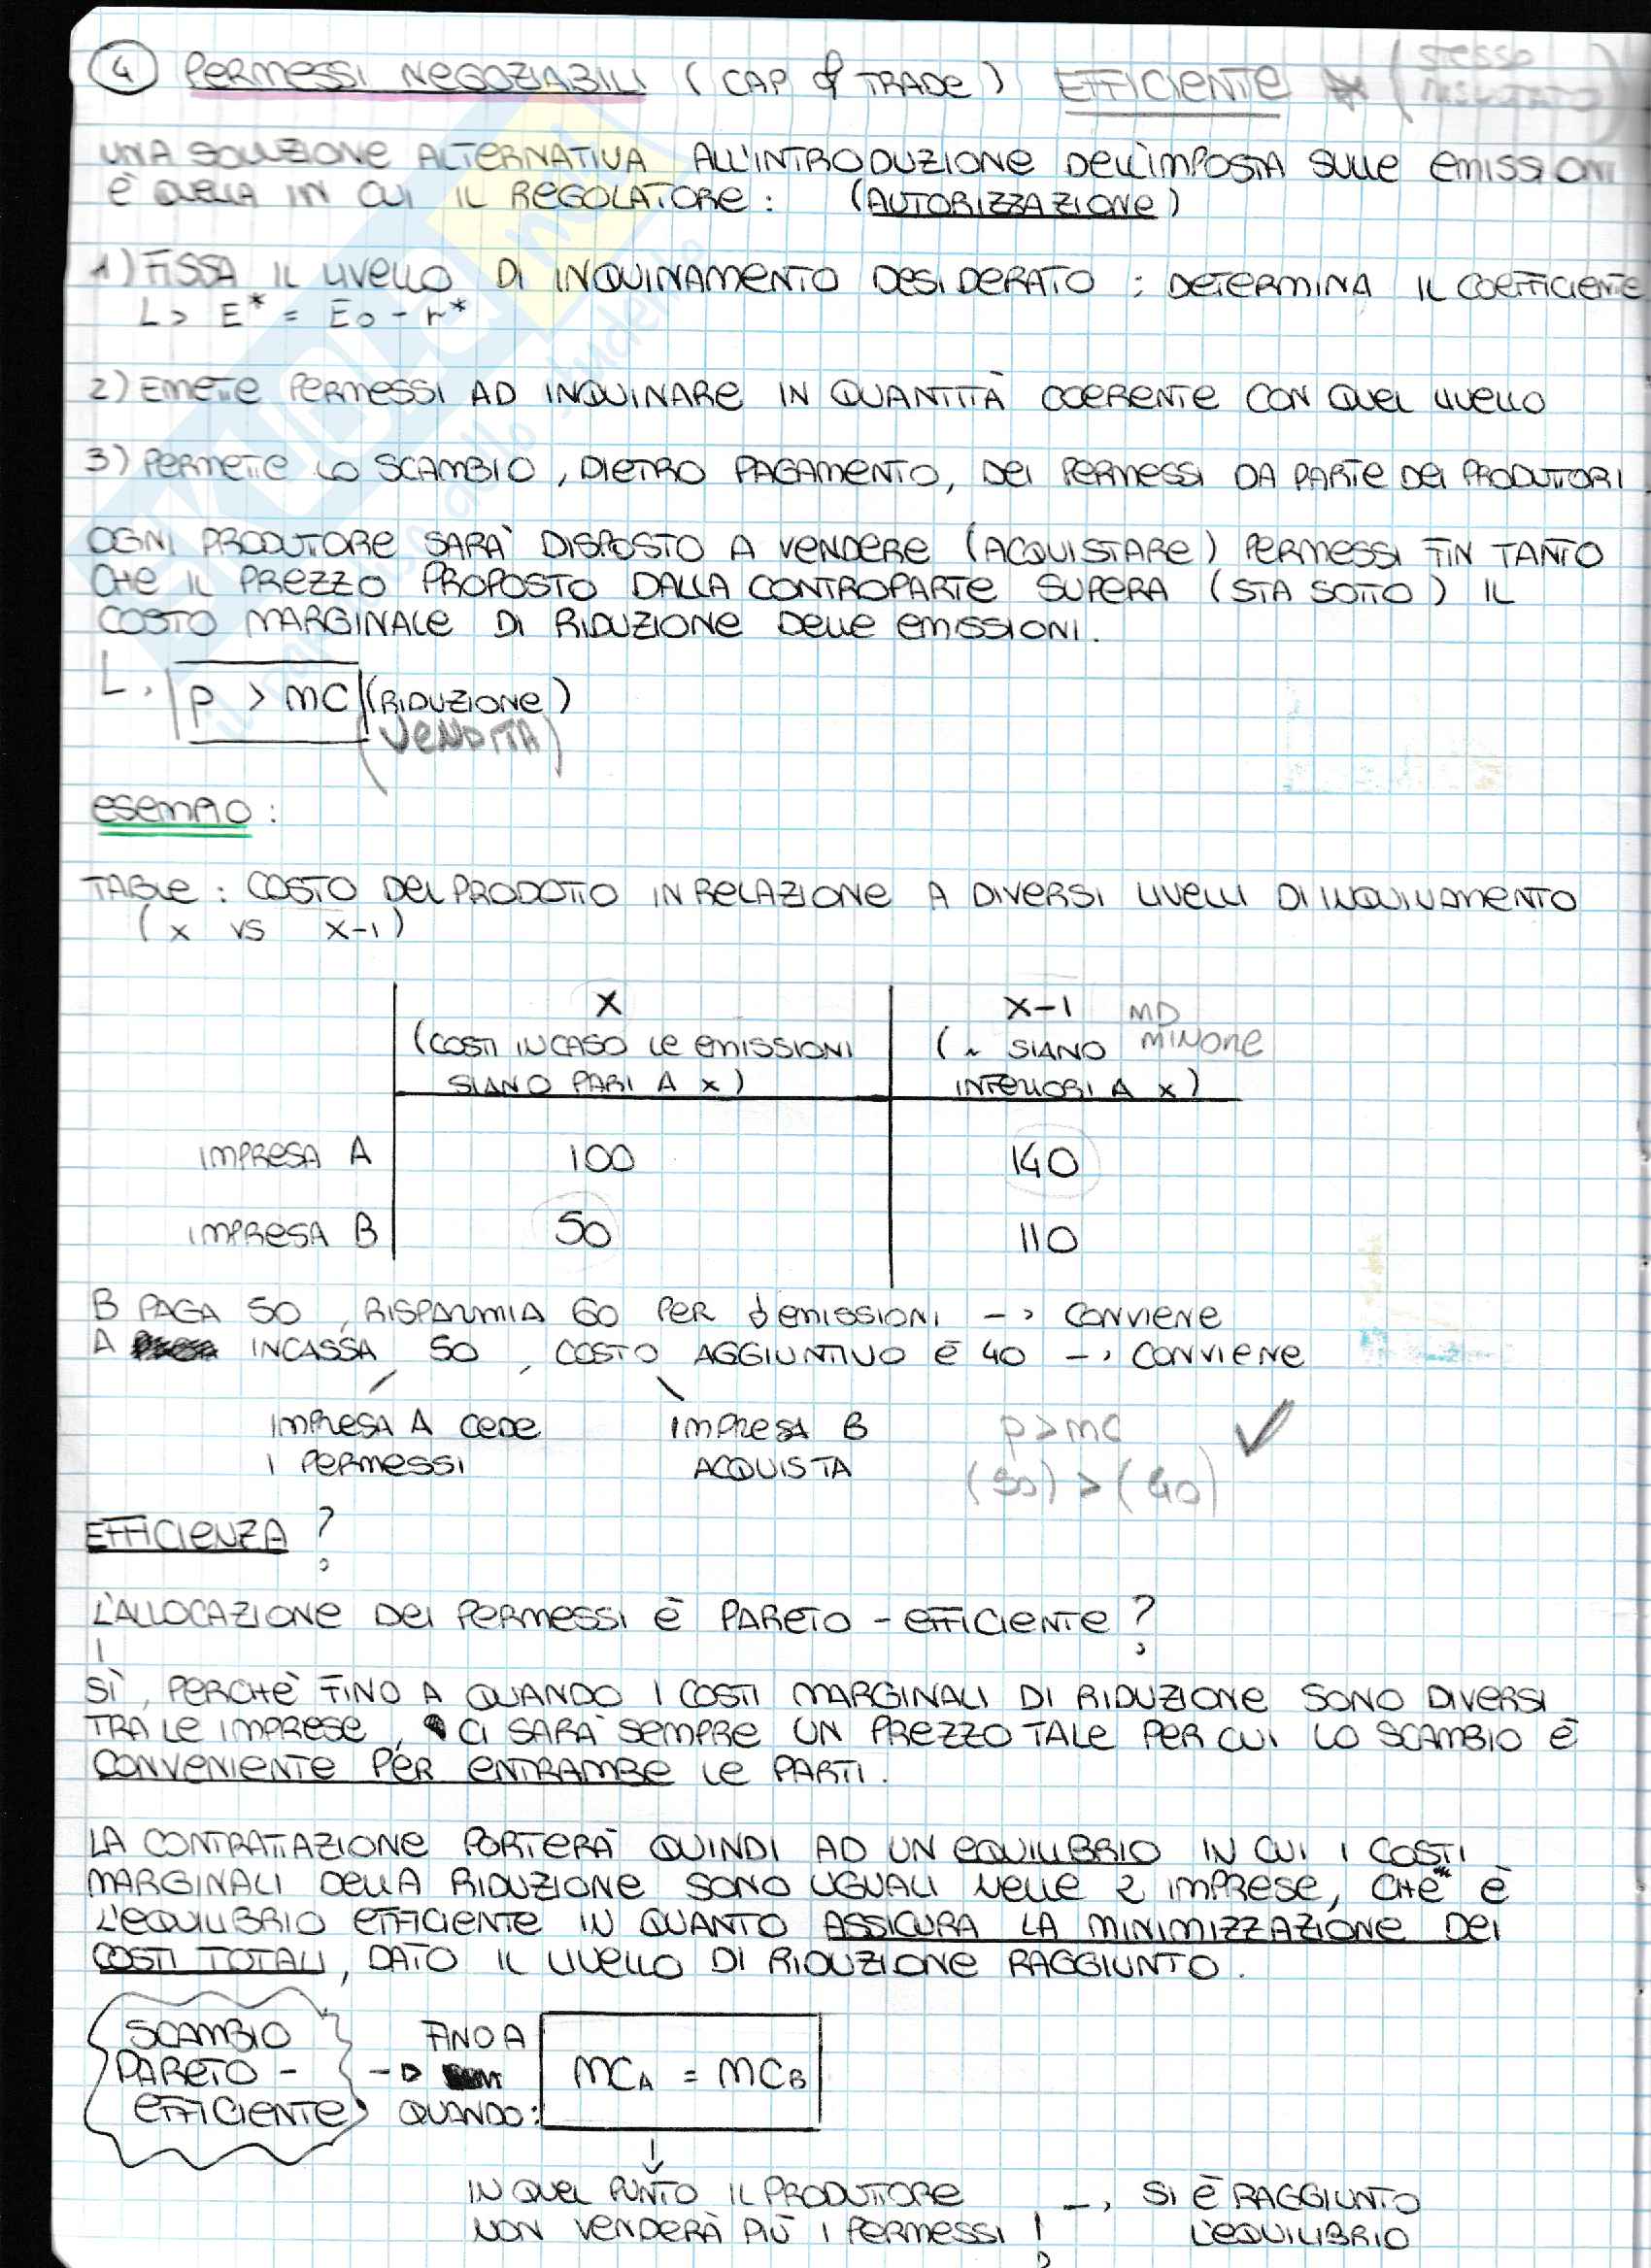 4 PERMESSI NEGOZIABILI (CAP & TRADE) EFFICIENTE * (STESSO RISULTATO)
UNA SOLUZIONE ALTERNATIVA ALL'INTRODUZIONE DELL'IMPOSTA SULLE EMISSIONI
È QUELLA IN CUI IL REGOLATORE: (AUTORIZZAZIONE)
1) FISSA IL LIVELLO DI INQUINAMENTO DESIDERATO; DETERMINA IL COEFFICIENTE
L> E* = E0 - r*
2) EMETTE PERMESSI AD INQUINARE IN QUANTITÀ COERENTE CON QUEL LIVELLO
3) PERMETTE LO SCAMBIO, DIETRO PAGAMENTO, DEI PERMESSI DA PARTE DEI PRODUTTORI
OGNI PRODUTTORE SARÀ DISPOSTO A VENDERE (ACQUISTARE) PERMESSI FIN TANTO
CHE IL PREZZO PROPOSTO DALLA CONTROPARTE SUPERA (STA SOTTO) IL
COSTO MARGINALE DI RIDUZIONE DELLE EMISSIONI.
L> p > MC (RIDUZIONE)
(VENDITA)
ESEMPIO:
TABLE: COSTO DEL PRODOTTO IN RELAZIONE A DIVERSI LIVELLI DI INQUINAMENTO
(X VS X-1)
X X-1 MD
(COSTI IN CASO LE EMISSIONI (~ SIANO MINORE
SIANO PARI A X) INFERIORI A X)
IMPRESA A 100 140
IMPRESA B 50 110
B PAGA 50, RISPARMIA 60 PER ↓ EMISSIONI -> CONVIENE
A INCASSA 50, COSTO AGGIUNTIVO È 40 -> CONVIENE
IMPRESA A CEDE IMPRESA B p>MC ✓
I PERMESSI ACQUISTA (50) > (40)
EFFICIENZA?
L'ALLOCAZIONE DEI PERMESSI È PARETO-EFFICIENTE?
SÌ, PERCHÈ FINO A QUANDO I COSTI MARGINALI DI RIDUZIONE SONO DIVERSI
TRA LE IMPRESE, CI SARÀ SEMPRE UN PREZZO TALE PER CUI LO SCAMBIO È
CONVENIENTE PER ENTRAMBE LE PARTI.
LA CONTRATTAZIONE PORTERÀ QUINDI AD UN EQUILIBRIO IN CUI I COSTI
MARGINALI DELLA RIDUZIONE SONO UGUALI NELLE 2 IMPRESE, CHE È
L'EQUILIBRIO EFFICIENTE IN QUANTO ASSICURA LA MINIMIZZAZIONE DEI
COSTI TOTALI, DATO IL LIVELLO DI RIDUZIONE RAGGIUNTO.
SCAMBIO FINO A
PARETO- -> MCA = MCB
EFFICIENTE QUANDO:
IN QUEL PUNTO IL PRODUTTORE -> SI È RAGGIUNTO
NON VENDERÀ PIÙ I PERMESSI! L'EQUILIBRIO